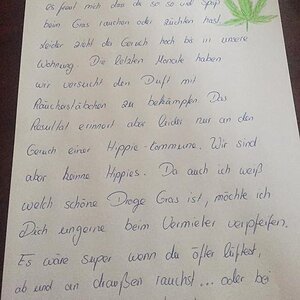 Es freut mich das du so so viel Spaß
beim Gras rauchen oder züchten hast
leider zieht der Geruch hoch bis in unsere
Wohnung. Die letzten Monate haben
wir versucht den Duft mit
Räucherstäbchen zu bekämpfen. Das
Resultat erinnert aber leider nur an den
Geruch einer Hippie-Commune. Wir sind
aber keine Hippies. Da auch ich weiß
welch schöne Droge Gras ist, möchte ich
Dich ungerne beim Vermieter verpfeifen.
Es wäre super wenn du öfter lüftest,
ab und an draußen rauchst... oder bei